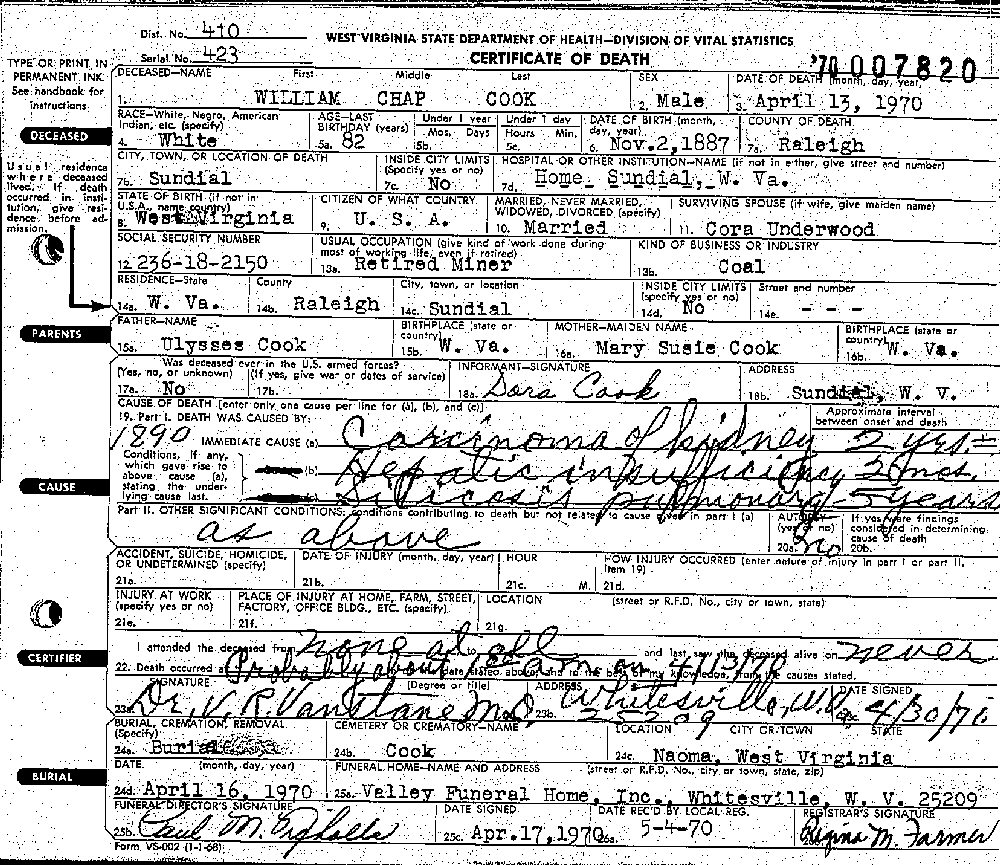 Dist. No. 410
WEST VIRGINIA STATE DEPARTMENT OF HEALTH—DIVISION OF VITAL STATISTICS
Serial No. 423
CERTIFICATE OF DEATH
'70 007820
TYPE OR PRINT IN PERMANENT INK
See handbook for instructions.
DECEASED—NAME First Middle Last SEX DATE OF DEATH (month, day, year)
1. WILLIAM CHAP COOK 2. Male 3. April 13, 1970
DECEASED
RACE—White, Negro, American Indian, etc. (specify) AGE—LAST BIRTHDAY (years) Under 1 year Mos. Days Under 1 day Hours Min. DATE OF BIRTH (month, day, year) COUNTY OF DEATH
4. White 5a. 82 5b. 5c. 6. Nov.2,1887 7a. Raleigh
Usual residence where deceased lived. If death occurred in institution, give residence before admission.
CITY, TOWN, OR LOCATION OF DEATH INSIDE CITY LIMITS (Specify yes or no) HOSPITAL OR OTHER INSTITUTION—NAME (if not in either, give street and number)
7b. Sundial 7c. No 7d. Home, Sundial, W. Va.
STATE OF BIRTH (if not in U.S.A., name country) CITIZEN OF WHAT COUNTRY MARRIED, NEVER MARRIED, WIDOWED, DIVORCED (specify) SURVIVING SPOUSE (if wife, give maiden name)
8. West Virginia 9. U. S. A. 10. Married 11. Cora Underwood
SOCIAL SECURITY NUMBER USUAL OCCUPATION (give kind of work done during most of working life, even if retired) KIND OF BUSINESS OR INDUSTRY
12. 236-18-2150 13a. Retired Miner 13b. Coal
RESIDENCE—State County City, town, or location INSIDE CITY LIMITS (specify yes or no) Street and number
14a. W. Va. 14b. Raleigh 14c. Sundial 14d. No 14e. - - -
PARENTS
FATHER—NAME BIRTHPLACE (state or country) MOTHER—MAIDEN NAME BIRTHPLACE (state or country)
15a. Ulysses Cook 15b. W. Va. 16a. Mary Susie Cook 16b. W. Va.
Was deceased ever in the U.S. armed forces? INFORMANT—SIGNATURE ADDRESS
(Yes, no, or unknown) (If yes, give war or dates of service)
17a. No 17b. 18a. Dora Cook 18b. Sundial, W. V.
CAUSE OF DEATH [enter only one cause per line for (a), (b), and (c)] Approximate interval between onset and death
19. Part I. DEATH WAS CAUSED BY:
1890 IMMEDIATE CAUSE (a) Carcinoma of kidney 2 yrs.±
CAUSE
Conditions, if any, which gave rise to above cause (a), stating the underlying cause last.
(b) Hepatic insufficiency 3 mos.
Silicosis pulmonary 5 years
Part II. OTHER SIGNIFICANT CONDITIONS: conditions contributing to death but not related to cause given in part I (a) AUTOPSY (yes or no) If yes were findings considered in determining cause of death
as above 20a. no 20b.
ACCIDENT, SUICIDE, HOMICIDE, OR UNDETERMINED (specify) DATE OF INJURY (month, day, year) HOUR HOW INJURY OCCURRED (enter nature of injury in part I or part II, item 19)
21a. 21b. 21c. M. 21d.
INJURY AT WORK (specify yes or no) PLACE OF INJURY AT HOME, FARM, STREET, FACTORY, OFFICE BLDG., ETC. (specify) LOCATION (street or R.F.D. No., city or town, state)
21e. 21f. 21g.
CERTIFIER
I attended the deceased from none at all to and last saw the deceased alive on never
22. Death occurred at Probably about am on 4/13/70 date stated above; and to the best of my knowledge, from the causes stated.
SIGNATURE (Degree or title) ADDRESS DATE SIGNED
23a. Dr. V. R. Vanstane M.D. 23b. Whitesville, W.V. 25209 4/30/70
BURIAL, CREMATION, REMOVAL (Specify) CEMETERY OR CREMATORY—NAME LOCATION CITY OR TOWN STATE
24a. Burial 24b. Cook 24c. Naoma, West Virginia
BURIAL
DATE (month, day, year) FUNERAL HOME—NAME AND ADDRESS (street or R.F.D. No., city or town, state, zip)
24d. April 16, 1970 25a. Valley Funeral Home, Inc., Whitesville, W. V. 25209
FUNERAL DIRECTOR'S SIGNATURE DATE SIGNED DATE REC'D BY LOCAL REG. REGISTRAR'S SIGNATURE
25b. Paul M. 25c. Apr.17,1970 26a. 5-4-70 Regina M. Farmer
Form VS-002 (1-1-68)